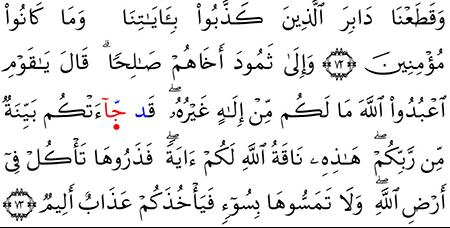 وَقَطَعْنَا دَابِرَ ٱلَّذِينَ كَذَّبُوا۟ بِـَٔايَـٰتِنَا ۖ وَمَا كَانُوا۟
مُؤْمِنِينَ ﴿٧٢﴾ وَإِلَىٰ ثَمُودَ أَخَاهُمْ صَـٰلِحًا ۗ قَالَ يَـٰقَوْمِ
ٱعْبُدُوا۟ ٱللَّهَ مَا لَكُم مِّنْ إِلَـٰهٍ غَيْرُهُۥ ۖ قَد جَّآءَتْكُم بَيِّنَةٌ
مِّن رَّبِّكُمْ ۖ هَـٰذِهِۦ نَاقَةُ ٱللَّهِ لَكُمْ ءَايَةً ۖ فَذَرُوهَا تَأْكُلْ فِىٓ
أَرْضِ ٱللَّهِ ۖ وَلَا تَمَسُّوهَا بِسُوٓءٍ فَيَأْخُذَكُمْ عَذَابٌ أَلِيمٌ ﴿٧٣﴾